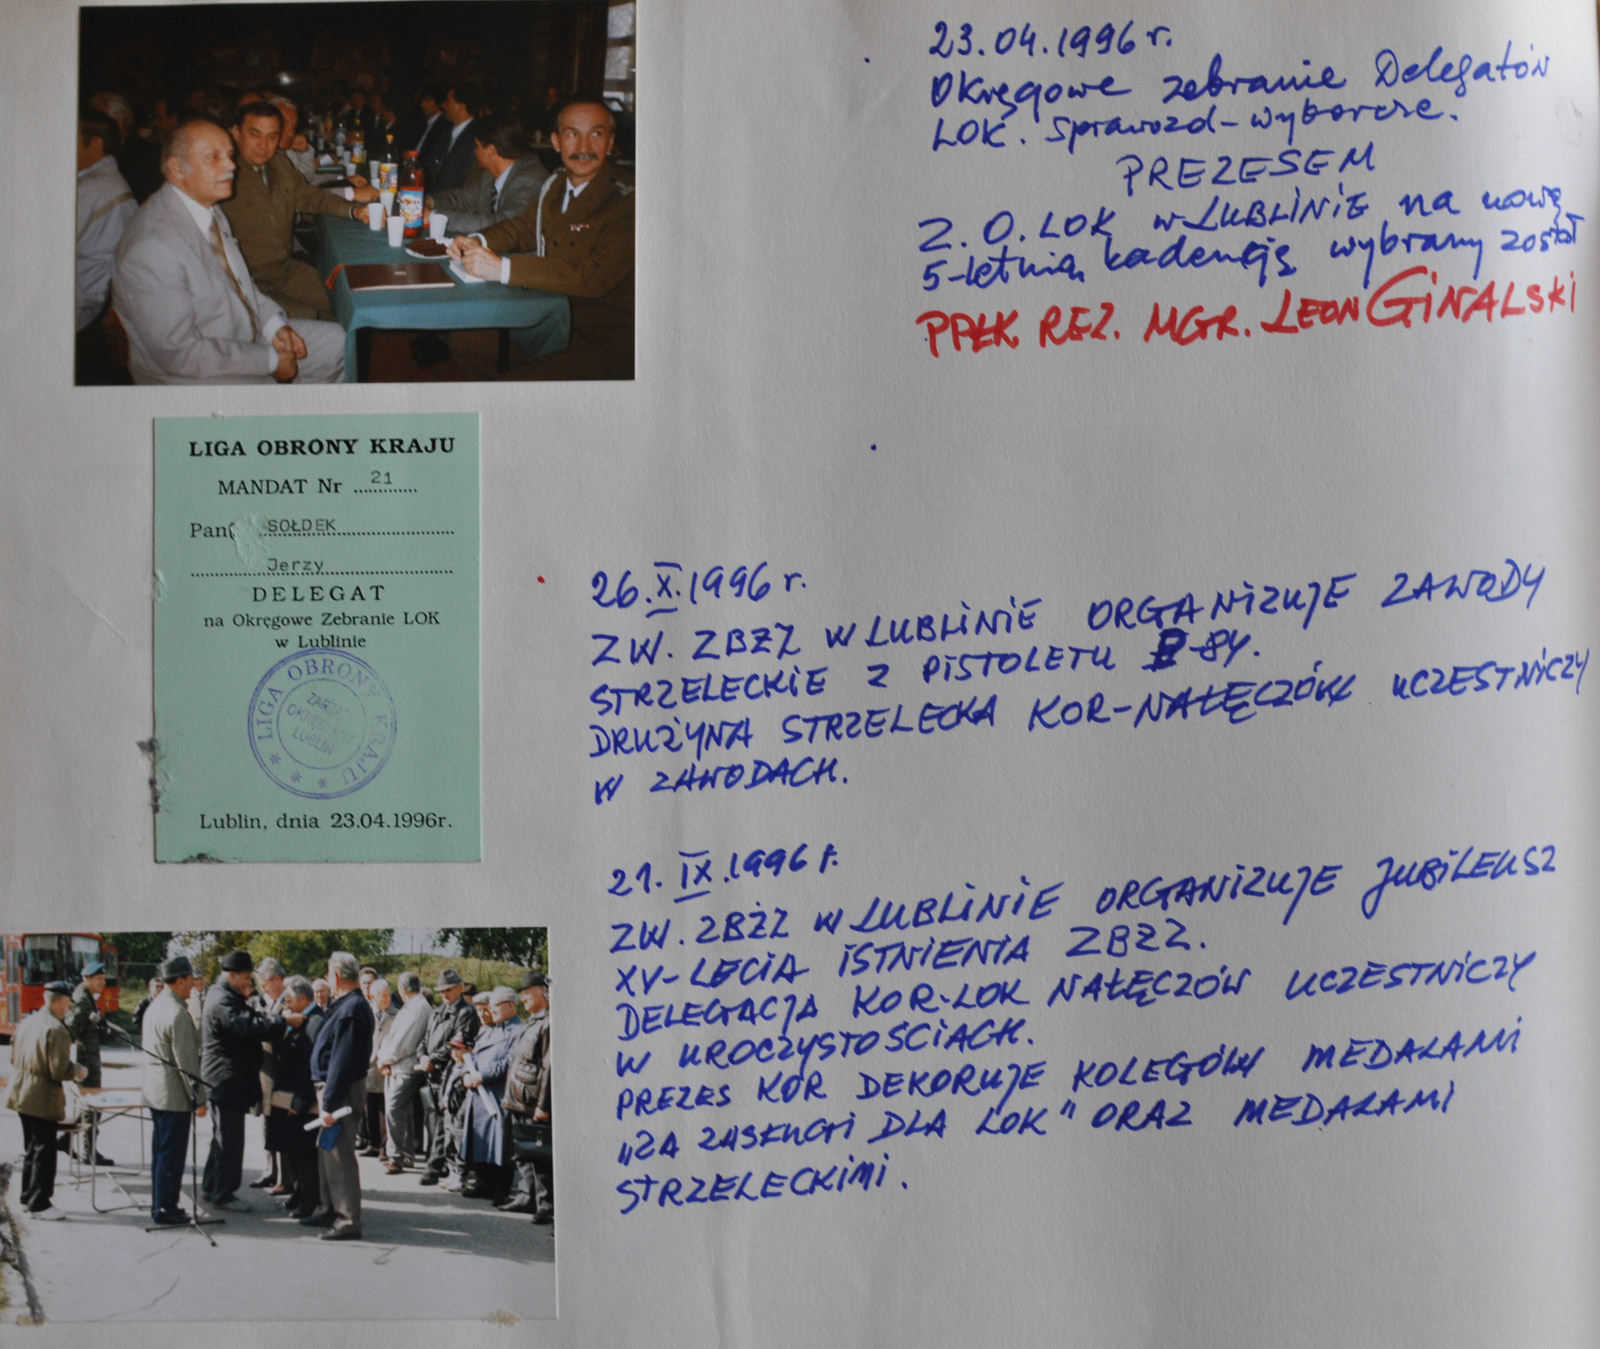 23.04.1996 r.
Okręgowe zebranie Delegatów
LOK. sprawozd-wyborcze.
PREZESEM
Z.O. LOK w LUBLINIE na nową
5-letnią kadencję wybrany został
PPŁK REZ. MGR. LEON GINALSKI
LIGA OBRONY KRAJU
MANDAT Nr 21
Pan( SOŁDEK
Jerzy
DELEGAT
na Okręgowe Zebranie LOK
w Lublinie
LIGA OBRONY KRAJU
ZARZĄD
OKRĘGOWY
LUBLIN
Lublin, dnia 23.04.1996r.
26.X.1996 r.
ZW. ZBŻZ W LUBLINIE ORGANIZUJE ZAWODY
STRZELECKIE Z PISTOLETU P-84.
DRUŻYNA STRZELECKA KOR-NAŁĘCZÓW UCZESTNICZY
W ZAWODACH.
21.IX.1996 r.
ZW. ZBŻZ W LUBLINIE ORGANIZUJE JUBILEUSZ
XV-LECIA ISTNIENIA ZBŻZ.
DELEGACJA KOR-LOK NAŁĘCZÓW UCZESTNICZY
W UROCZYSTOŚCIACH.
PREZES KOR DEKORUJE KOLEGÓW MEDALAMI
„ZA ZASŁUGI DLA LOK" ORAZ MEDALAMI
STRZELECKIMI.